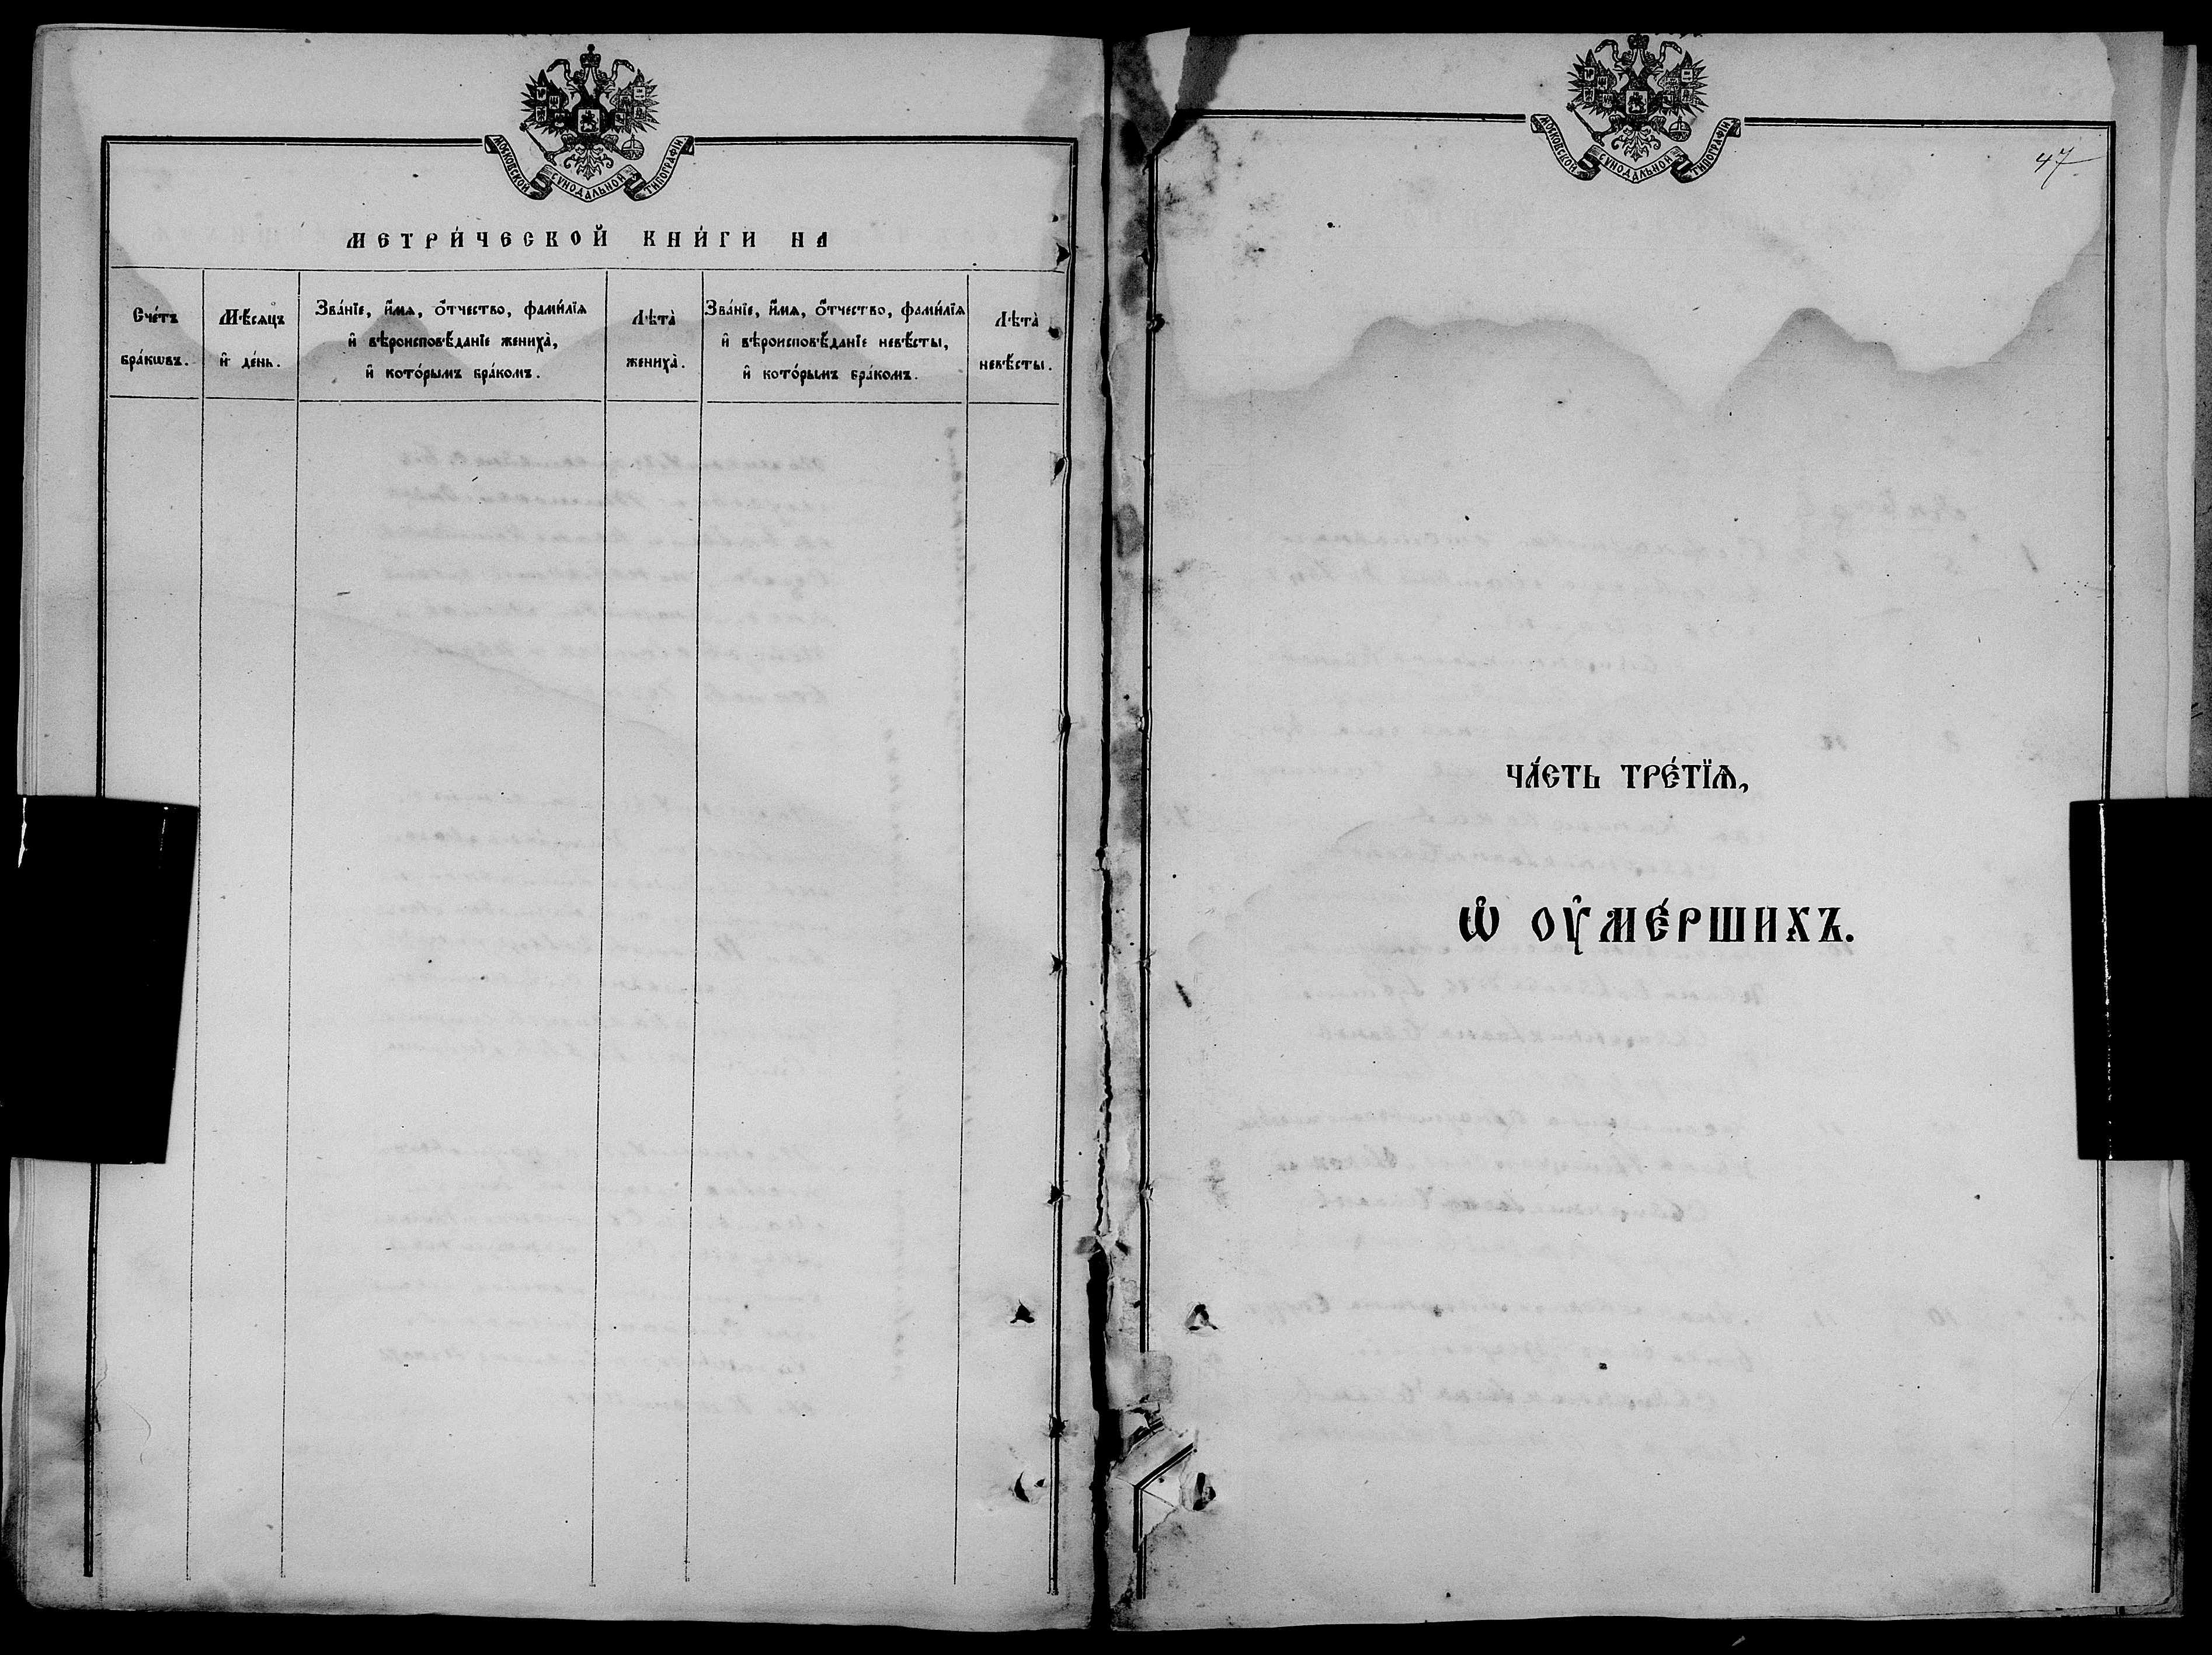 МОСКОВСКОЙ СѴНОДАЛЬНОЙ ТИПОГРАФІИ
МЕТРИ́ЧЕСКОЙ КНИ́ГИ НА
Сче́тъ
бра́кѡвъ.
Мѣ́сяцъ
и҆ де́нь.
Зва́нїе, и҆́мѧ, ѻ҆́тчество, фами́лїѧ
и҆ вѣроисповѣ́данїе жениха̀,
и҆ кото́рымъ бра́комъ.
Лѣта̀
жениха̀.
Зва́нїе, и҆́мѧ, ѻ҆́тчество, фами́лїѧ
и҆ вѣроисповѣ́данїе невѣ́сты,
и҆ кото́рымъ бра́комъ.
Лѣта̀
невѣ́сты.
МОСКОВСКОЙ СѴНОДАЛЬНОЙ ТИПОГРАФІИ
47
ЧА́СТЬ ТРЕ́ТЇѦ,
Ѡ҆ ОУ҆МЕ́РШИХЪ.